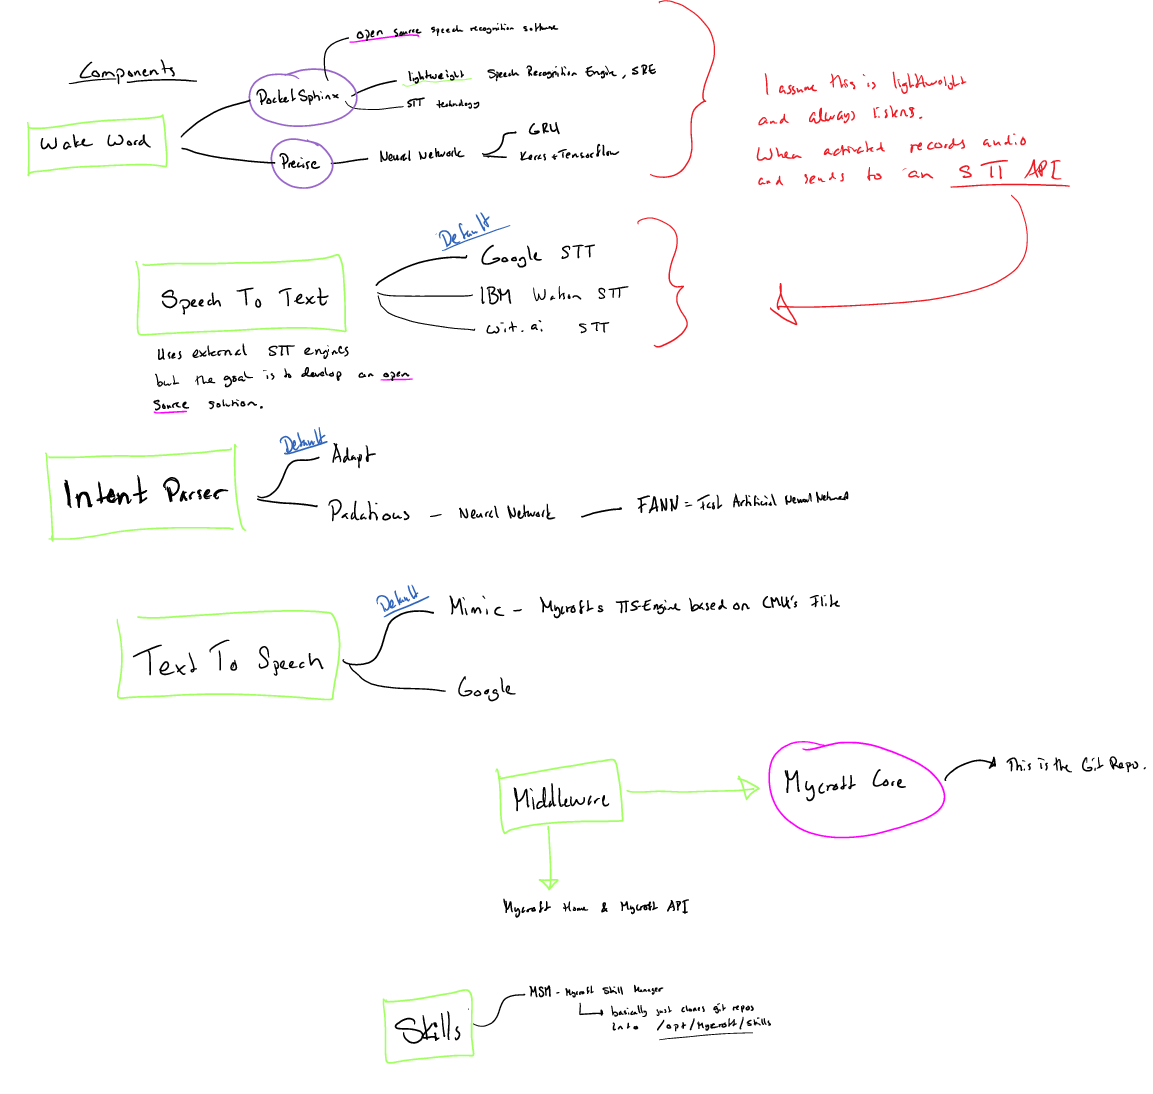 Components
Wake Word
PocketSphinx
open source speech recognition software
lightweight Speech Recognition Engine, SRE
STT technology
Precise
Neural Network
GRU
Keras + Tensorflow
I assume this is lightweight
and always listens.
When activated records audio
and sends to an STT API
Speech To Text
Default
Google STT
IBM Watson STT
wit.ai STT
Uses external STT engines
but the goal is to develop an open
source solution.
Intent Parser
Default
Adapt
Padatious - Neural Network
FANN = Fast Artificial Neural Network
Text To Speech
Default
Mimic - Mycroft's TTS-Engine based on CMU's Flite
Google
Middleware
Mycroft Core
This is the Git Repo.
Mycroft Home & Mycroft API
Skills
MSM - Mycroft Skill Manager
basically just clones git repos
into /opt/Mycroft/skills